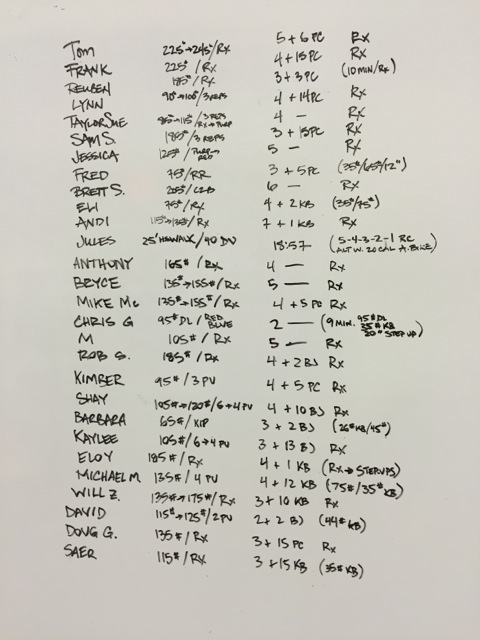 Tom 225#→245#/Rx 5 + 6 PC Rx
FRANK 225#/Rx 4 + 15 PC Rx
REUBEN 185#/Rx 3 + 3 PC (10 MIN/Rx)
LYNN 90#→100#/3 REPS 4 + 14 PC Rx
TAYLOR SUE /3 REPS Rx→PURP 4 — Rx
SAM S. 185#/3 REPS 3 + 15 PC Rx
JESSICA 125#/PURP→RED 5 — Rx
FRED 75#/RR 3 + 5 PC (35#/65#/12")
BRETT S. 205#/C2B 6 — Rx
ELI 75#/Rx 4 + 2 KB (35#/75#)
ANDI /Rx 7 + 1 KB Rx
JULES 25' HSWALK/40 DU 18:57 (5-4-3-2-1 RC
ALT W. 20 CAL A. BIKE)
ANTHONY 165#/Rx 4 — Rx
BRYCE 135#→155#/Rx 5 — Rx
MIKE Mc 135#→155#/Rx 4 + 5 PC Rx
CHRIS G 95# DL/RED BLUE 2 — (9 MIN. 95# DL
35# KB
20" STEP UP)
M 105#/Rx 5 — Rx
ROB S. 185#/Rx 4 + 2 BJ Rx
KIMBER 95#/3 PU 4 + 5 PC Rx
SHAY 105#→120#/6→4 PU 4 + 10 BJ Rx
BARBARA 65#/KIP 3 + 2 BJ (26# KB/45#)
KAYLEE 105#/6→4 PU 3 + 13 BJ Rx
ELOY 185#/Rx 4 + 1 KB (Rx→STEPUPS)
MICHAEL M 135#/4 PU 4 + 12 KB (75#/35# KB)
WILL Z. 135#→175#/Rx 3 + 10 KB Rx
DAVID 115#→125#/2 PU 2 + 2 BJ (44# KB)
DOUG G. 135#/Rx 3 + 15 PC Rx
SAER 115#/Rx 3 + 15 KB (35# KB)